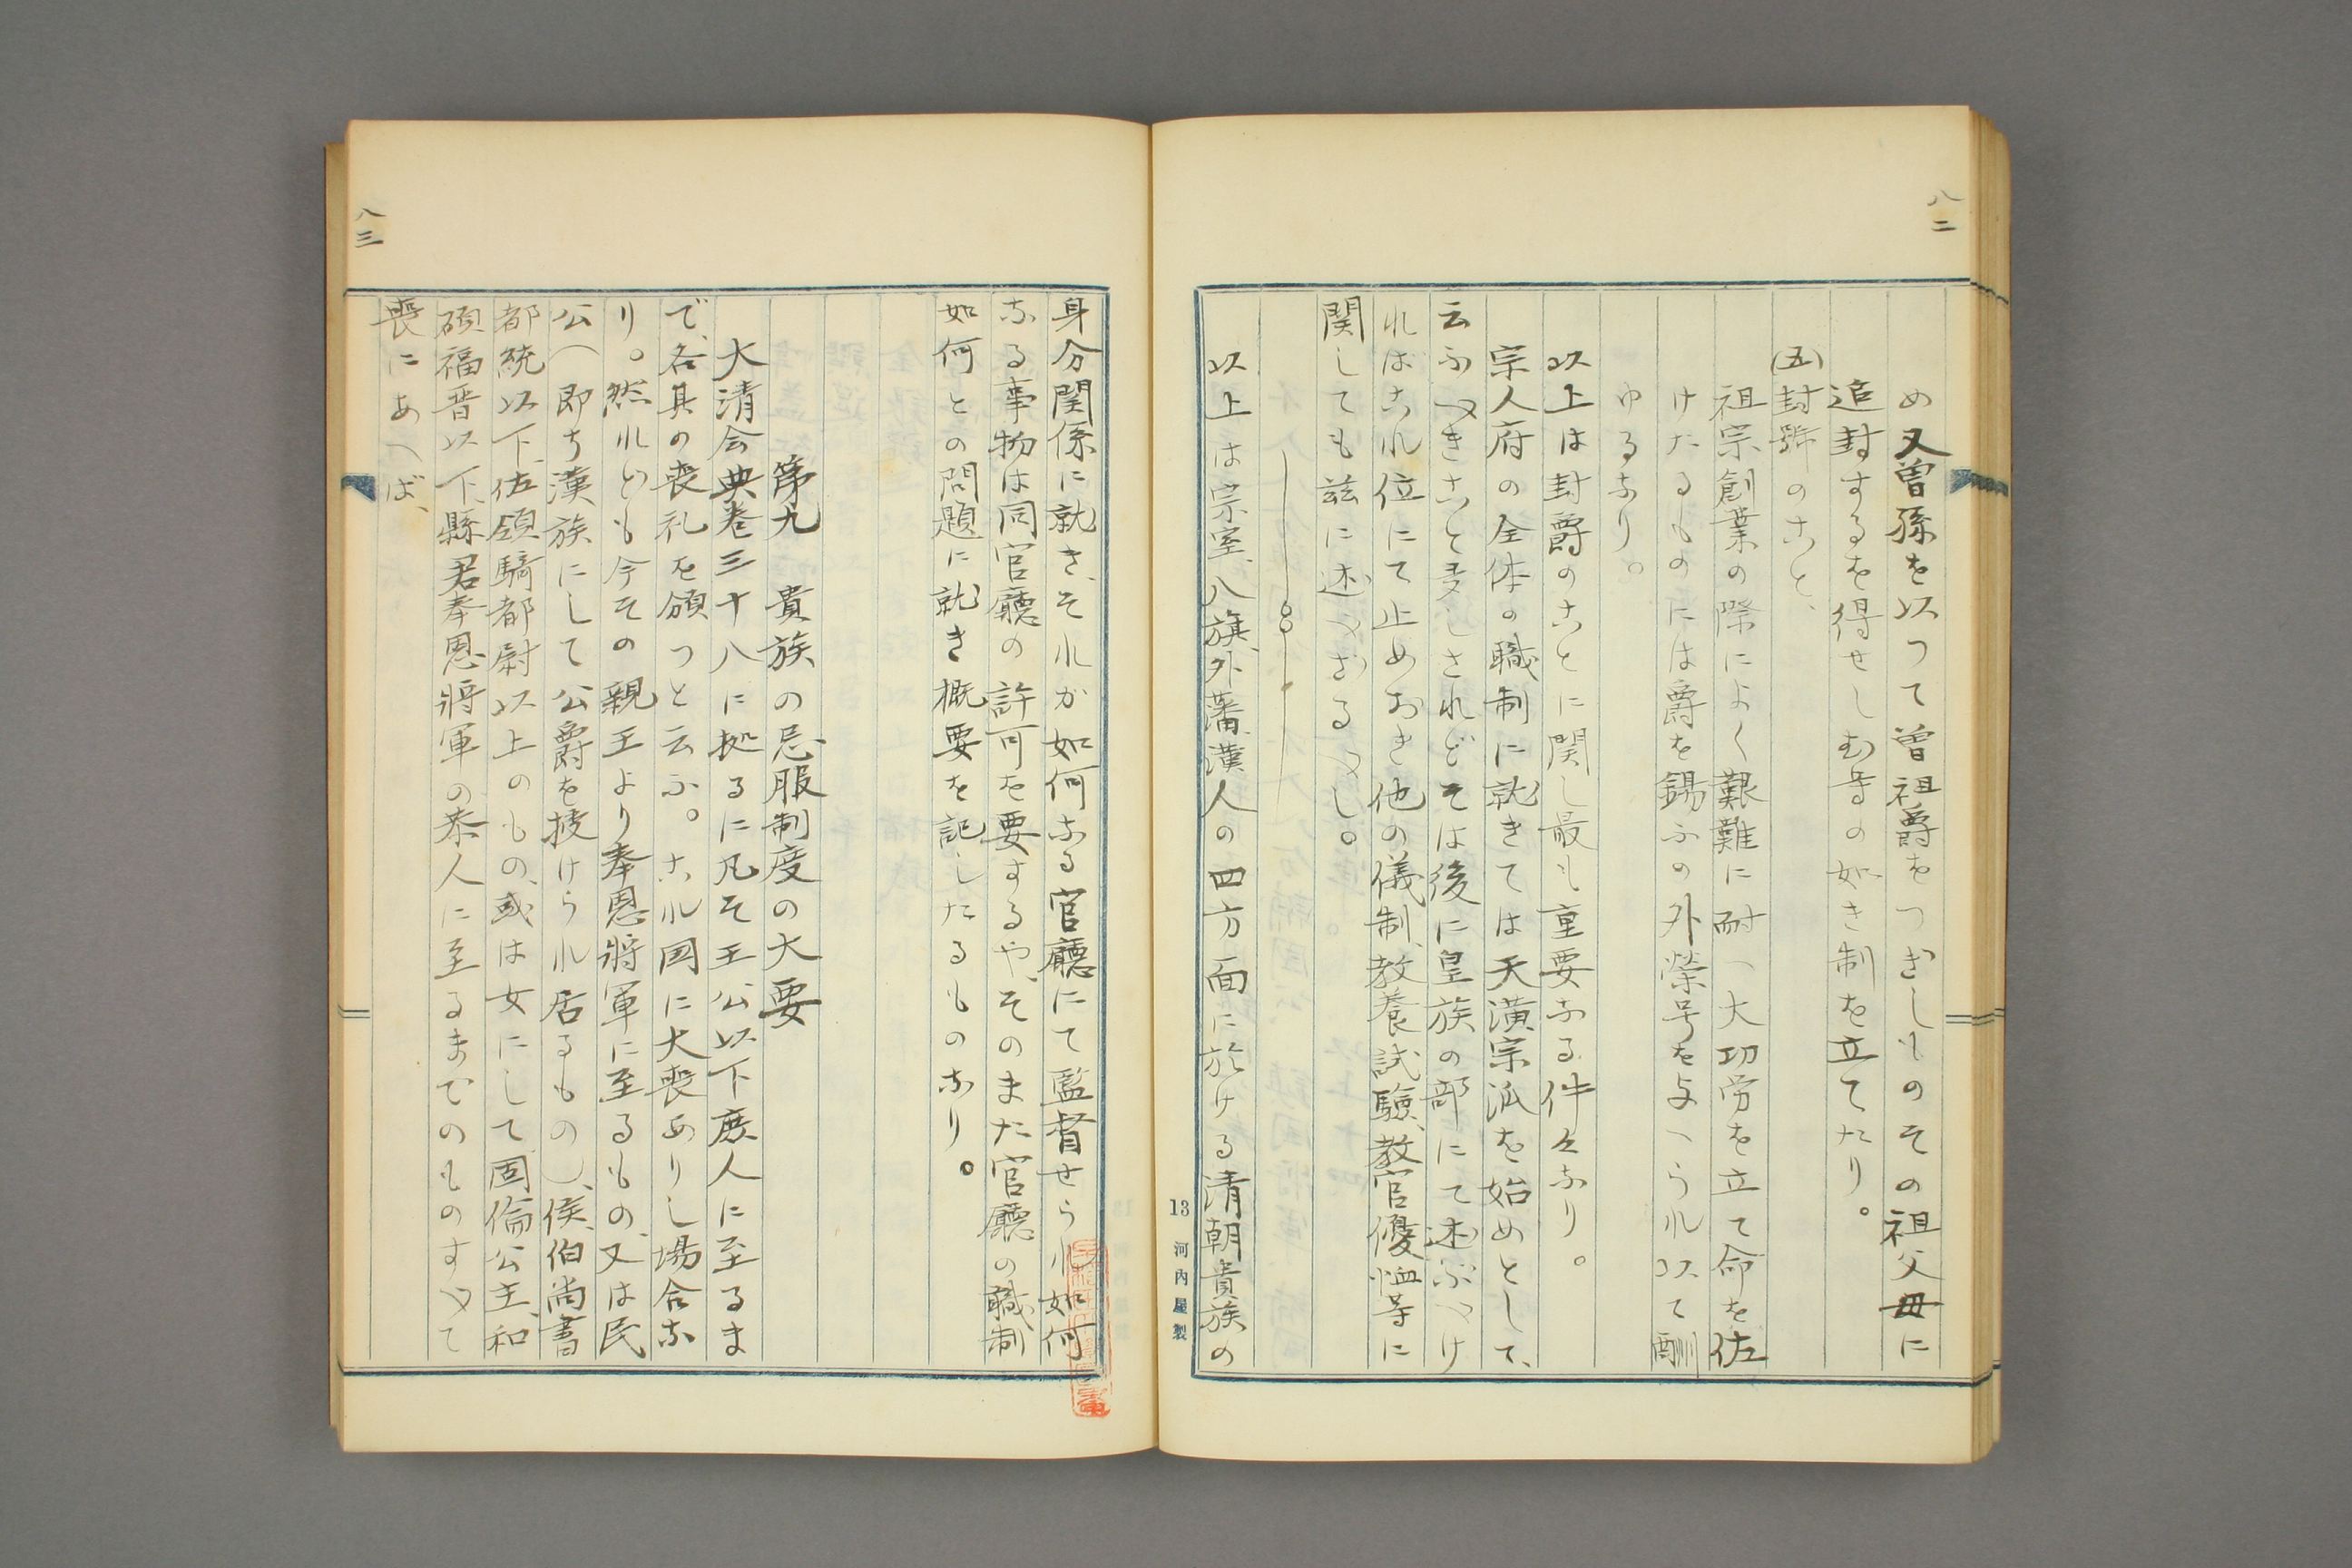 八二
め又曾孫を以つて曾祖爵をつぎしものその祖父母に
追封するを得せしむ等の如き制を立てたり。
(五)封號のこと、
祖宗創業の際によく艱難に耐へ大功労を立て命を佐
けたるものには爵を錫ふの外榮号を与へられ以て酬
ゆるなり。
以上は封爵のことに関し最も重要なる件々なり。
宗人府の全体の職制に就きては天潢宗派を始めとして、
云ふべきこと多しされどそは後に皇族の部にて述ぶべけ
ればこれ位にて止めおき他の儀制、教養試驗、教官優恤等に
関しても茲に述べざるべし。
以上は宗室、八旗、外藩、漢人の四方面に於ける清朝貴族の
13 河内屋製
八三
身分関係に就き、それが如何なる官廳にて監督せられ如何
なる事物は同官廳の許可を要するや、そのまた官廳の職制
如何との問題に就き概要を記したるものなり。
第九 貴族の忌服制度の大要
大清会典卷三十八に拠るに凡そ王公以下庶人に至るま
で、各其の喪礼を頒つと云ふ。これ国に大喪ありし場合な
り。然れども今その親王より奉恩將軍に至るもの、又は民
公(即ち漢族にして公爵を授けられ居るもの)、侯、伯尚書
都統以下、佐領騎都尉以上のもの、或は女にして固倫公主、和
碩福晋以下、縣君奉恩將軍の恭人に至るまでのものすべて
喪にあへば、